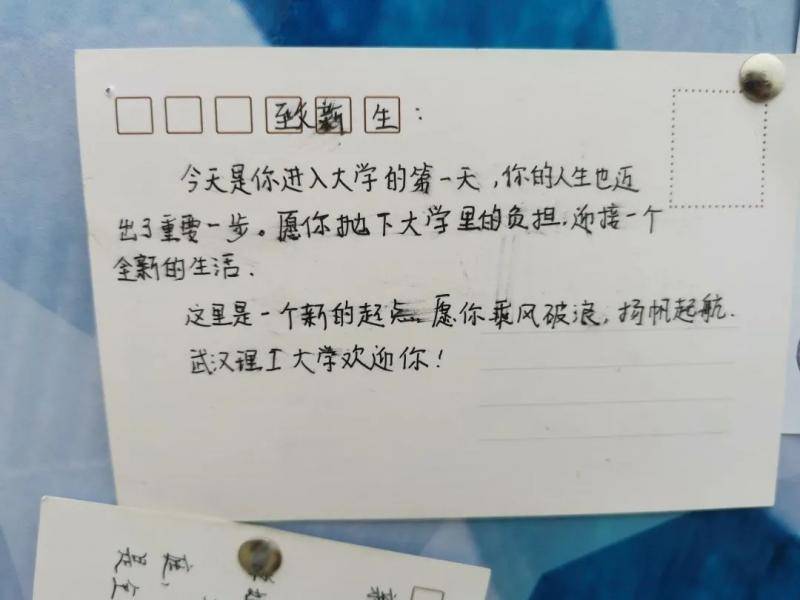 至新生：
今天是你进入大学的第一天，你的人生也迈
出了重要一步。愿你抛下大学里的负担，迎接一个
全新的生活.
这里是一个新的起点 愿你乘风破浪，扬帆起航.
武汉理工大学欢迎你！